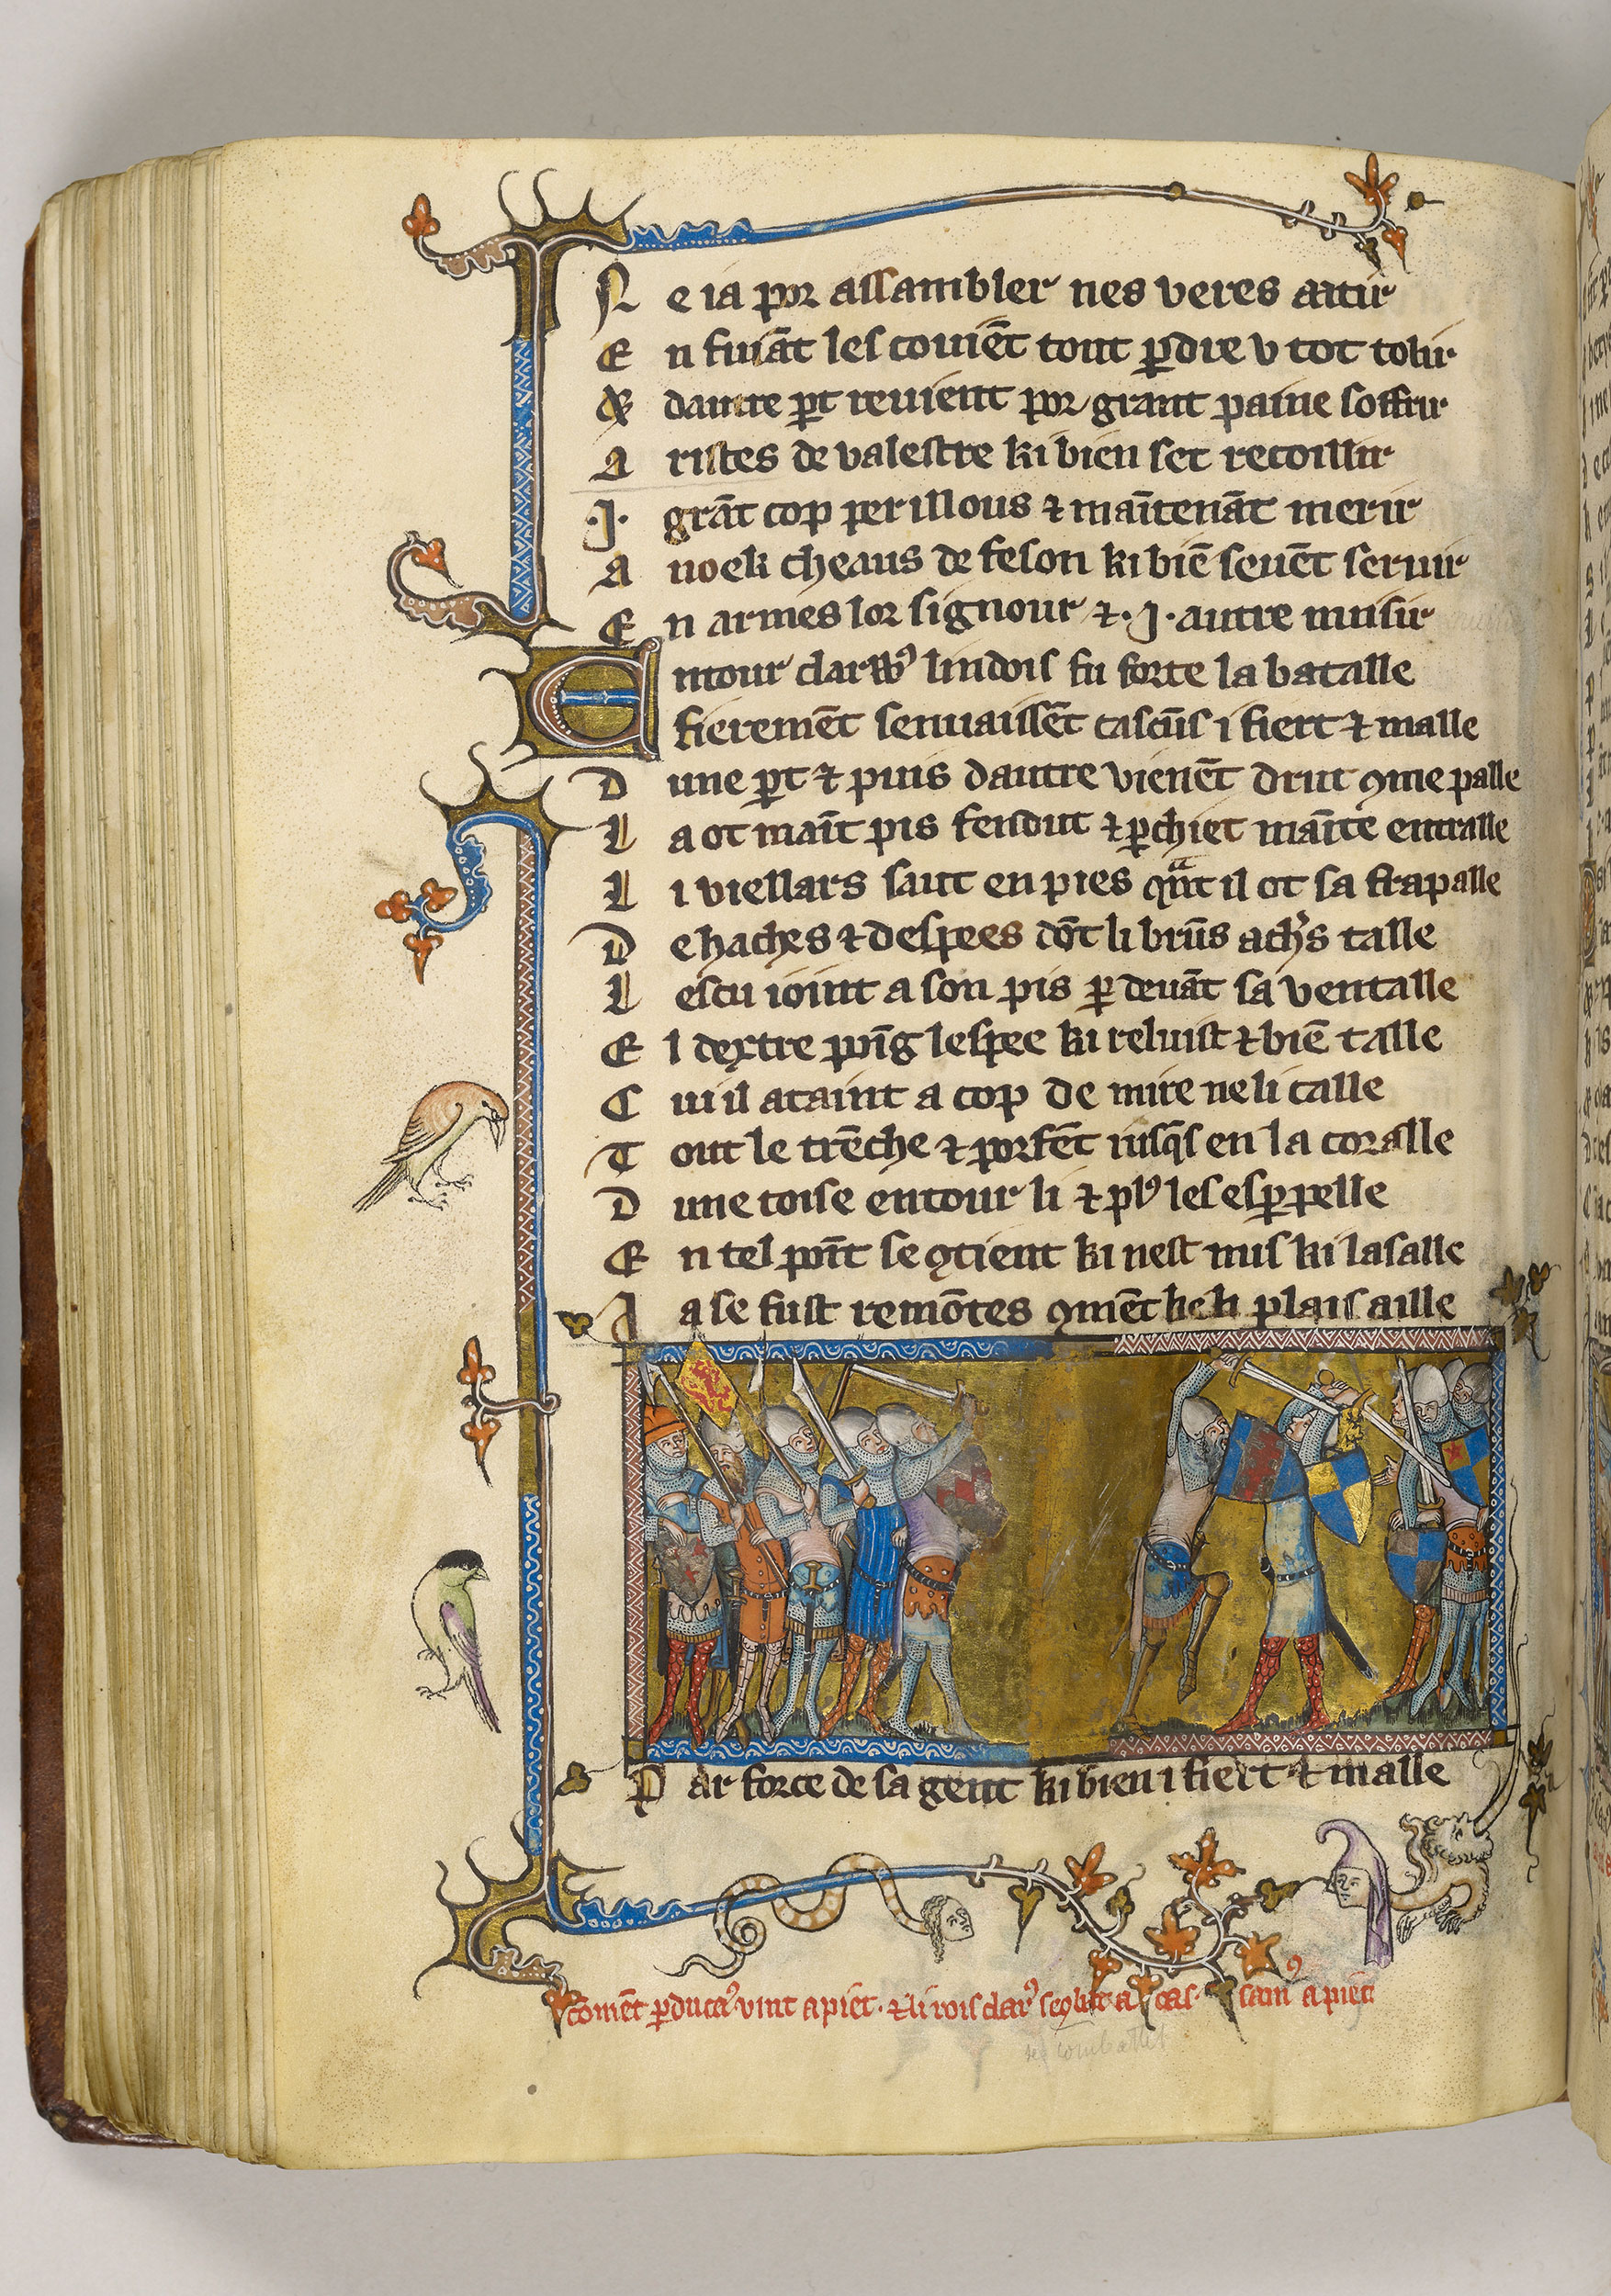 N e ia por assambler nes veres aatir
E n fuiãt les couiẽt tout ꝑdre v tot tolir
& dautre ꝑt reuient por grant paine soffrir
A ristes de valestre ki bien set recoillir
.I. grãt cop perillous ⁊ maĩtenãt merir
A uoek cheaus de feson ki biẽ seuẽt seruir
E n armes lor signour ⁊ .I. autre murir
E ntour clarꝰ lindois fu forte la batalle
fieremẽt senuaissẽt cascũs i fiert ⁊ malle
D une ꝑt ⁊ puis dautre vienẽt drut ꝯme palle
L a ot maĩt pis fendut ⁊ ꝑchiet maĩte entralle
L i viellars saut en pies qᵃ̃t il ot sa frapalle
D e haches ⁊ despees dõt li brũs achs̃ talle
L escu ioint a son pis ꝑ deuãt sa ventalle
E l dextre poĩg lespee ki reluist ⁊ biẽ talle
C ui il ataint a cop de mire ne li calle
T out le trẽche ⁊ porfẽt iusqs̃ en la coralle
D une toise entour li ⁊ plꝰ les esꝑpelle
E n tel poĩt se ꝯtient ki nest nus ki lasalle
I a se fust remõtes ꝯmẽt keli plais aille
P ar force de sa gent ki bien i fiert ⁊ malle
cõmẽt ꝑducaꝰ vint a piet. ⁊ li rois clarꝰ seꝯbat a cas sauiꝰ a piet
se combattet